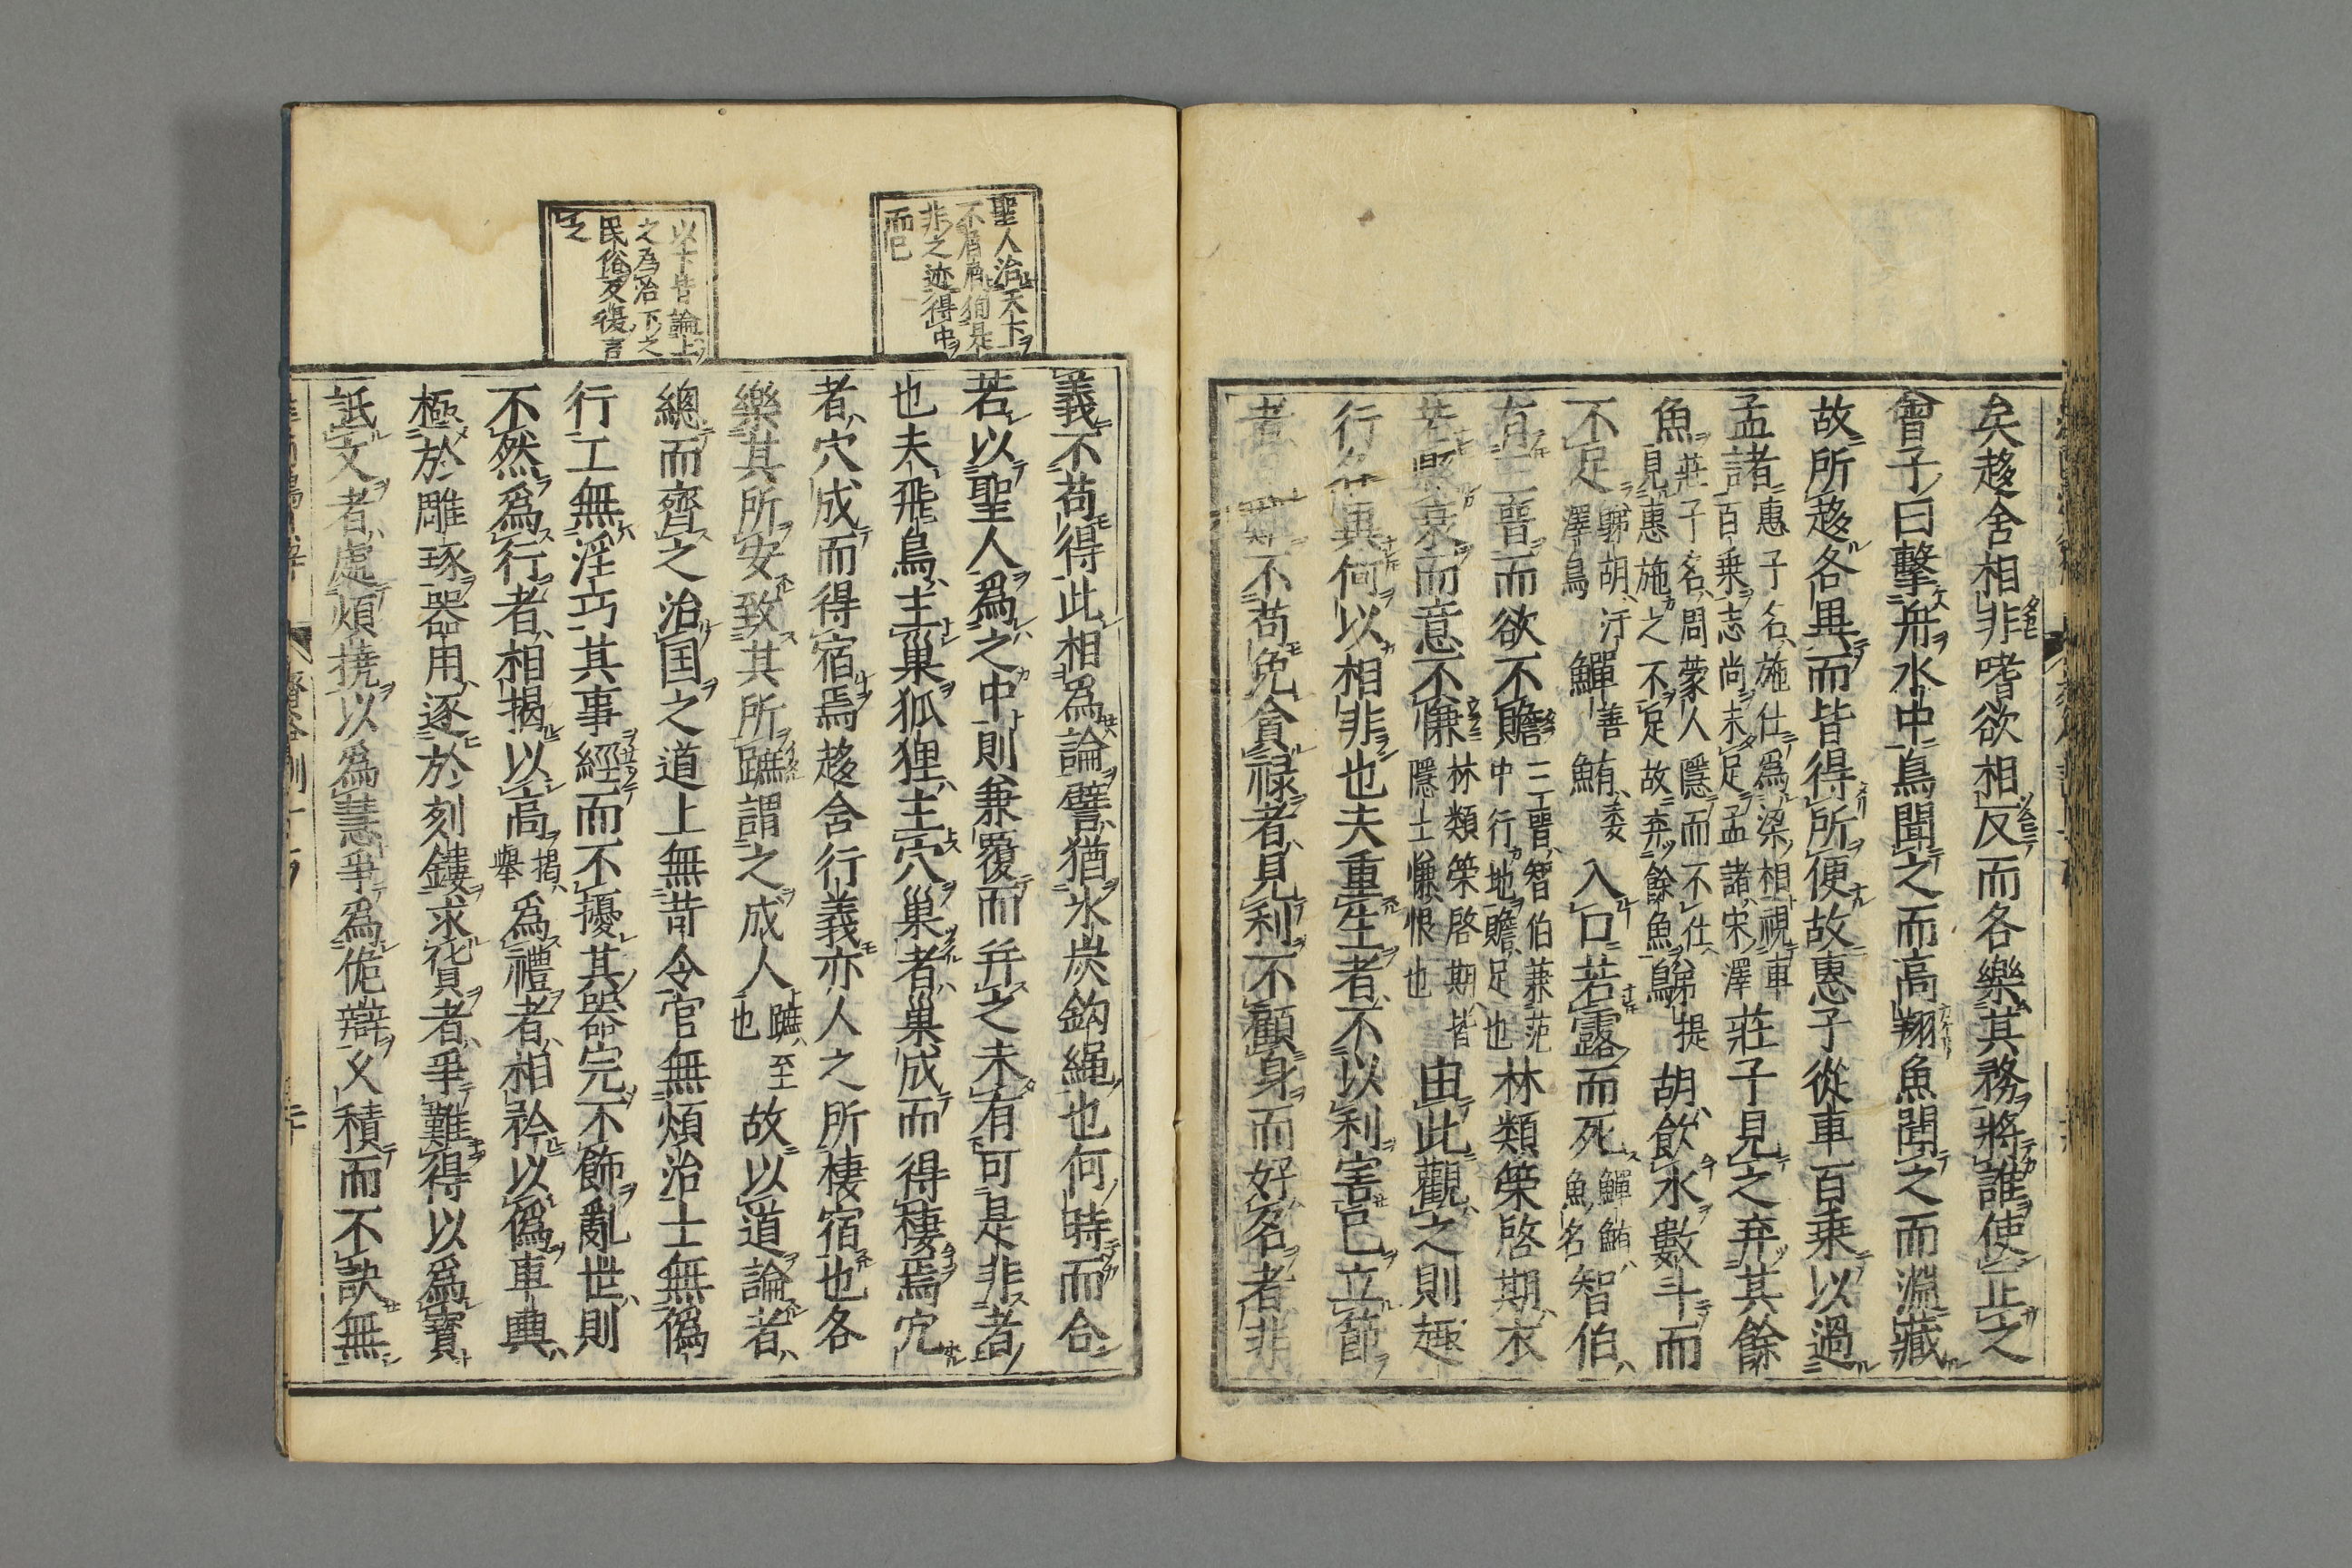 矣趍舍相非嗜欲相反而各樂其務將誰使正之
曾子曰擊舟水中鳥聞之而高翔魚聞之而淵藏
故所趍各異而皆得所便故惠子從車百乗以過
孟諸惠子名施仕爲梁相視車
百乗志尚未足孟諸宋澤莊子見之弃其餘
魚莊子名周蒙人隱而不仕
見惠施之不足故弃餘魚鵜提胡飮水數斗而
不足鵜胡汙
澤鳥鱓善鮪委入口若露而死鱓鮪
魚名智伯
有三晋而欲不贍三晋智伯兼范
中行地贍足也林類榮啓期衣
若縣衰而意不慊林類榮啓期皆
隱士慊恨也由此觀之則趣
行各異何以相非也夫重生者不以利害己立節
者見難不苟免貪禄者見利不顧身而好名者非
義不苟得此相爲論譬猶氷炭鈎繩也何時而合
若以聖人爲之中則兼覆而并之未有可是非者
也夫飛鳥主巢狐狸主穴巢者巢成而得棲焉穴
者穴成而得宿焉趍舍行義亦人之所棲宿也各
樂其所安致其所蹠謂之成人蹠至
也故以道論者
總而齊之治国之道上無苛令官無煩治士無僞
行工無淫巧其事經而不擾其器完不飾亂世則
不然爲行者相揭以高揭
舉爲禮者相矜以僞車輿
極於雕琢器用逐於刻鏤求貨者爭難得以爲寳
詆文者處煩撓以爲慧爭爲佹辯久積而不訣無
聖人治天下
不屑屑徇是
非之迹得中
而已
以下皆論上
之爲治下之
民俗反復言
之